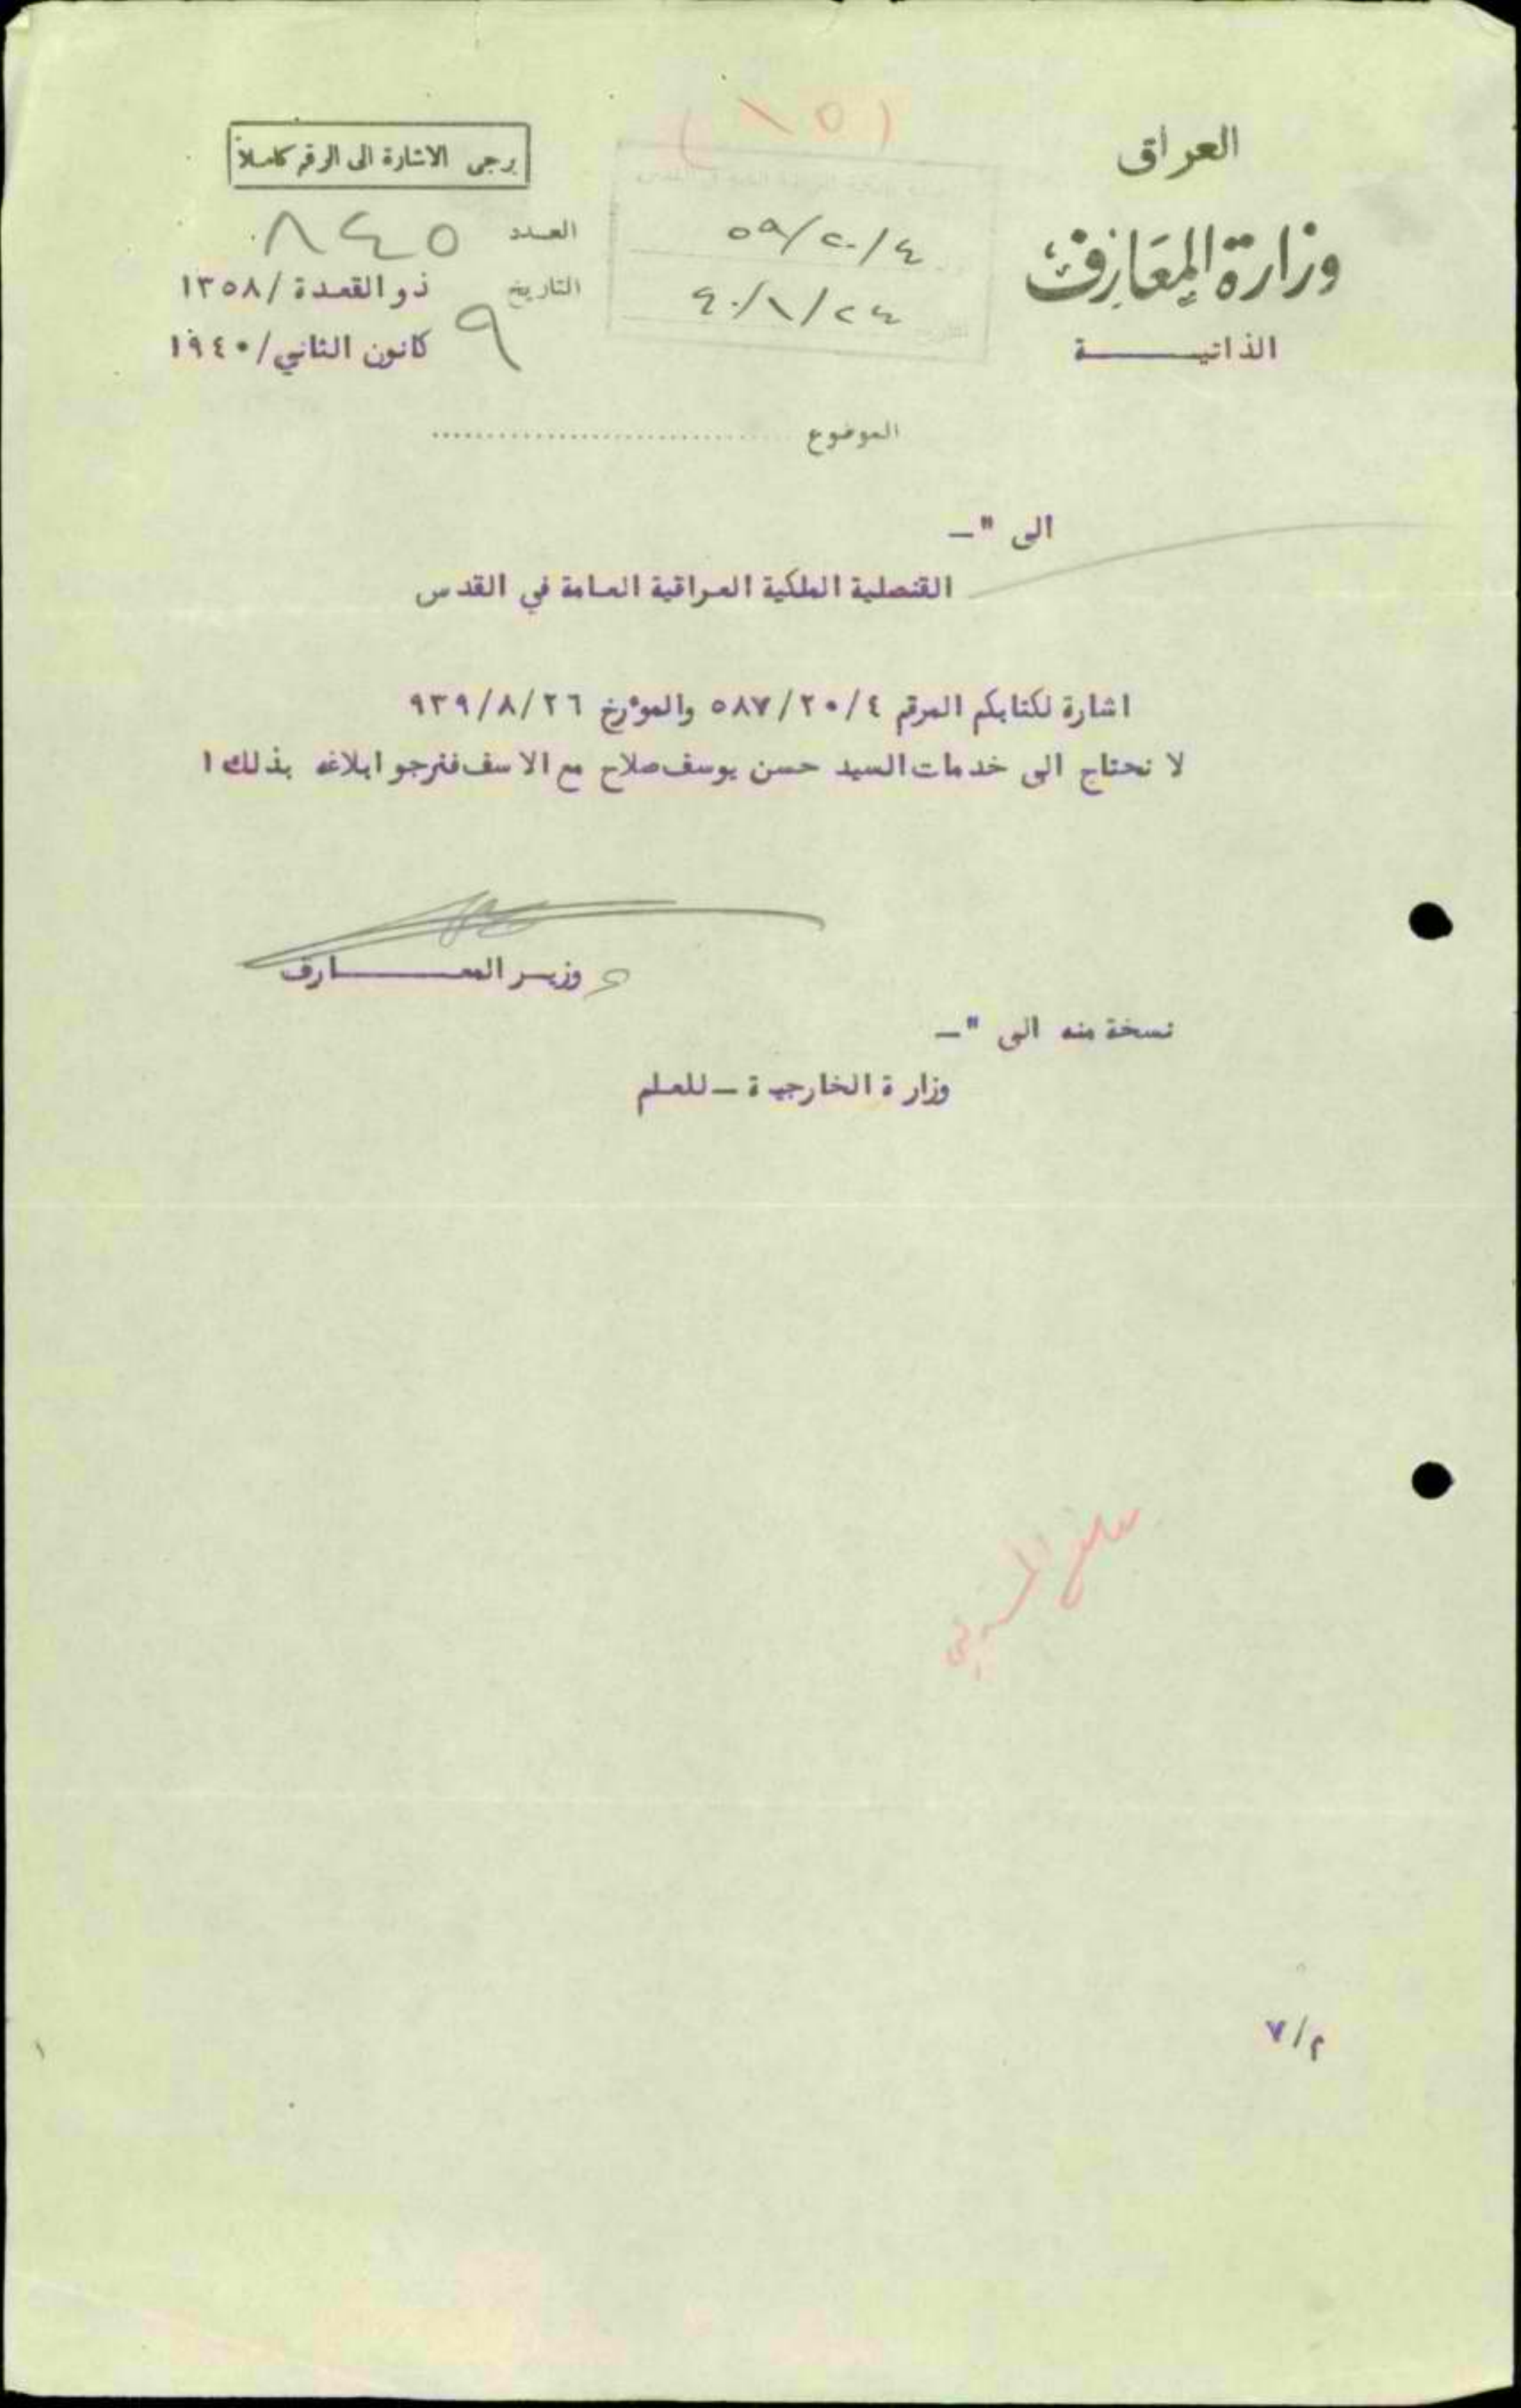 (١٥)
العراق
وزارة المعارف
الذاتيــــــة
يرجى الاشارة الى الرقم كاملاً
العدد ٨٤٥
التاريخ ذو القعدة / ١٣٥٨
٩ كانون الثاني / ١٩٤٠
٥٩/٢٠/٤
٤٠/١/٢٤
الموضوع ..............................
الى "ـ
القنصلية الملكية العراقية العامة في القدس
اشارة لكتابكم المرقم ٥٨٧/٢٠/٤ والموٴرخ ٩٣٩/٨/٢٦
لا نحتاج الى خدمات السيد حسن يوسف صلاح مع الاسف فنرجو ابلاغه بذلك ا
وزيــر المعــــــــارف
نسخة منه الى "ـ
وزارة الخارجية ـ للعلم
م/٧